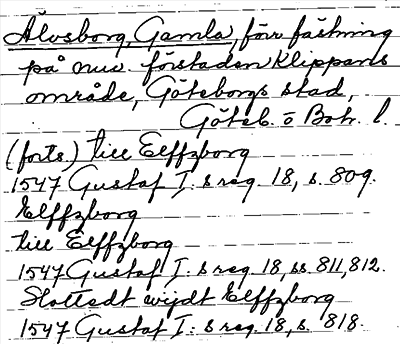 Älvsborg, Gamla, förr fästning
på nuv. förstaden Klippans
område, Göteborgs stad,
Göteb. o Boh. l.
(forts) till Elffzborg
1547 Gustaf I: s reg. 18, s. 809.
Elffzborg
till Elffzborg
1547 Gustaf I: s reg. 18, ss. 811, 812.
Slottedt wijdt Elffzborg
1547 Gustaf I: s reg. 18, s. 818.